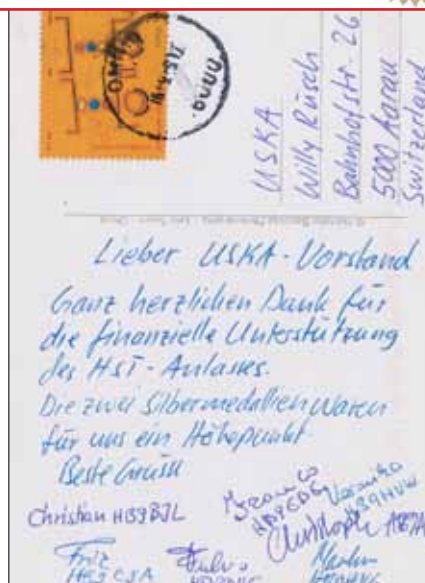 USKA
Willy Rüsch
Bahnhofstr. 26
5000 Aarau
Switzerland
Lieber USKA-Vorstand
Ganz herzlichen Dank für
die finanzielle Unterstützung
des HST-Anlasses.
Die zwei Silbermedallien waren
für uns ein Höhepunkt.
Beste Grüsse
Christian HB9BJL
Veronika
HB9HVW
Christoph
Fritz
HB9CSA
Fulvio